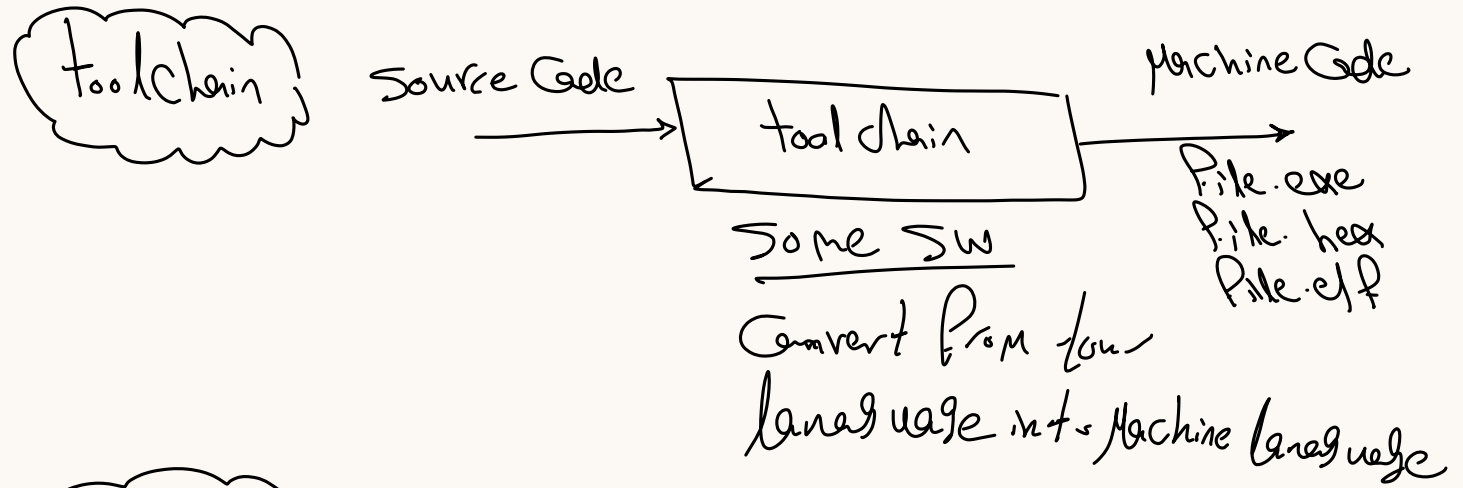 toolchain
Source Code
toolchain
Machine Code
File.exe
File.hex
File.elf
Some SW
Convert from your
language into Machine language